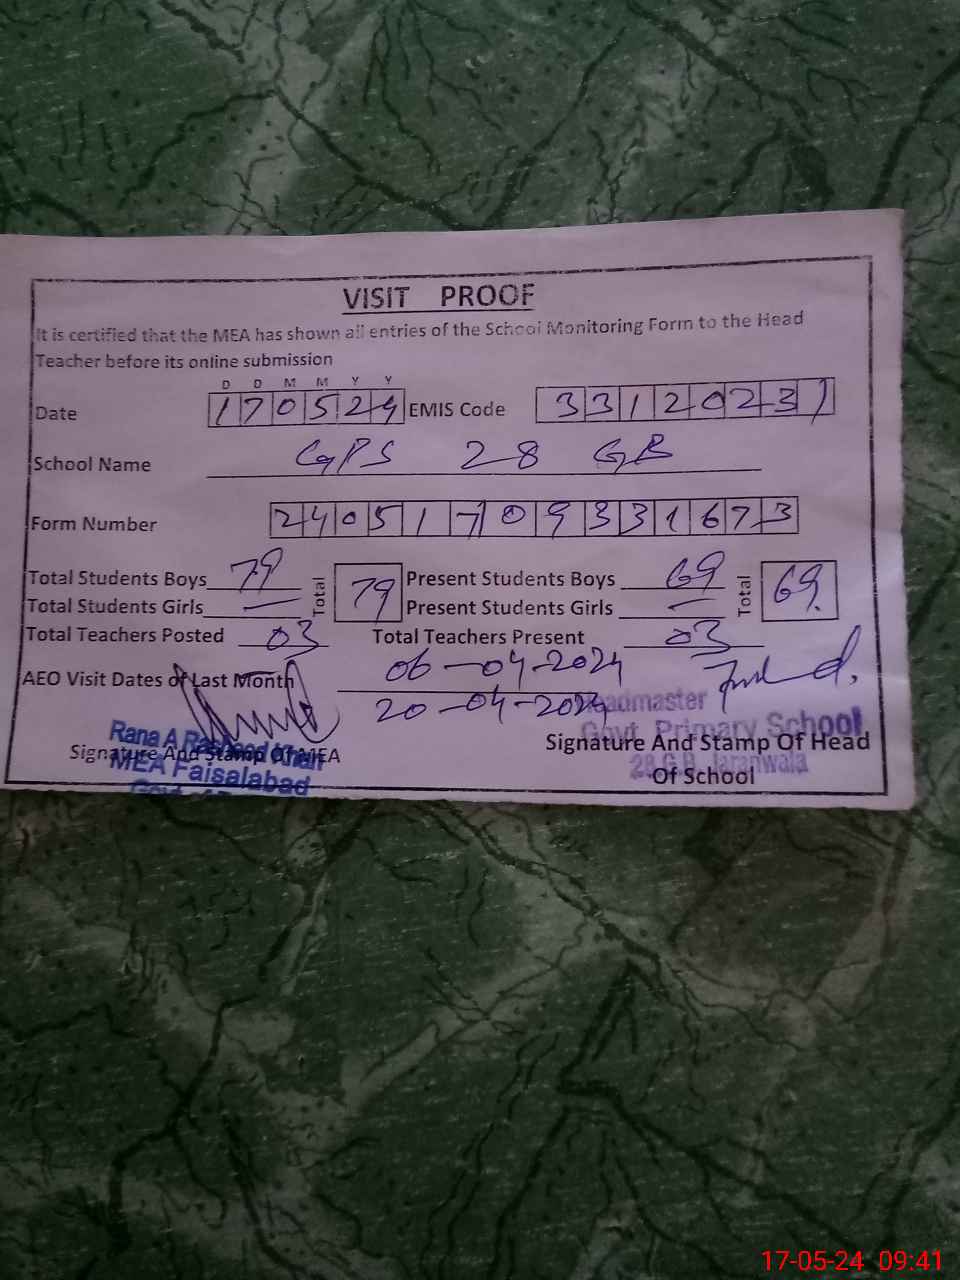 VISIT PROOF
It is certified that the MEA has shown all entries of the School Monitoring Form to the Head
Teacher before its online submission
D D M M Y Y
Date 170524 EMIS Code 33120231
School Name GPS 28 GB
Form Number 24051709331673
Total Students Boys 79 Total 79 Present Students Boys 69 Total 69
Total Students Girls — Present Students Girls —
Total Teachers Posted 03 Total Teachers Present 03
AEO Visit Dates of Last Month 06-04-2024
20-04-2024
Headmaster
Govt. Primary School
28 G.B. Jaranwala
Rana A Rasheed Khan
MEA Faisalabad
Signature And Stamp Of MEA
Signature And Stamp Of Head
Of School
17-05-24 09:41